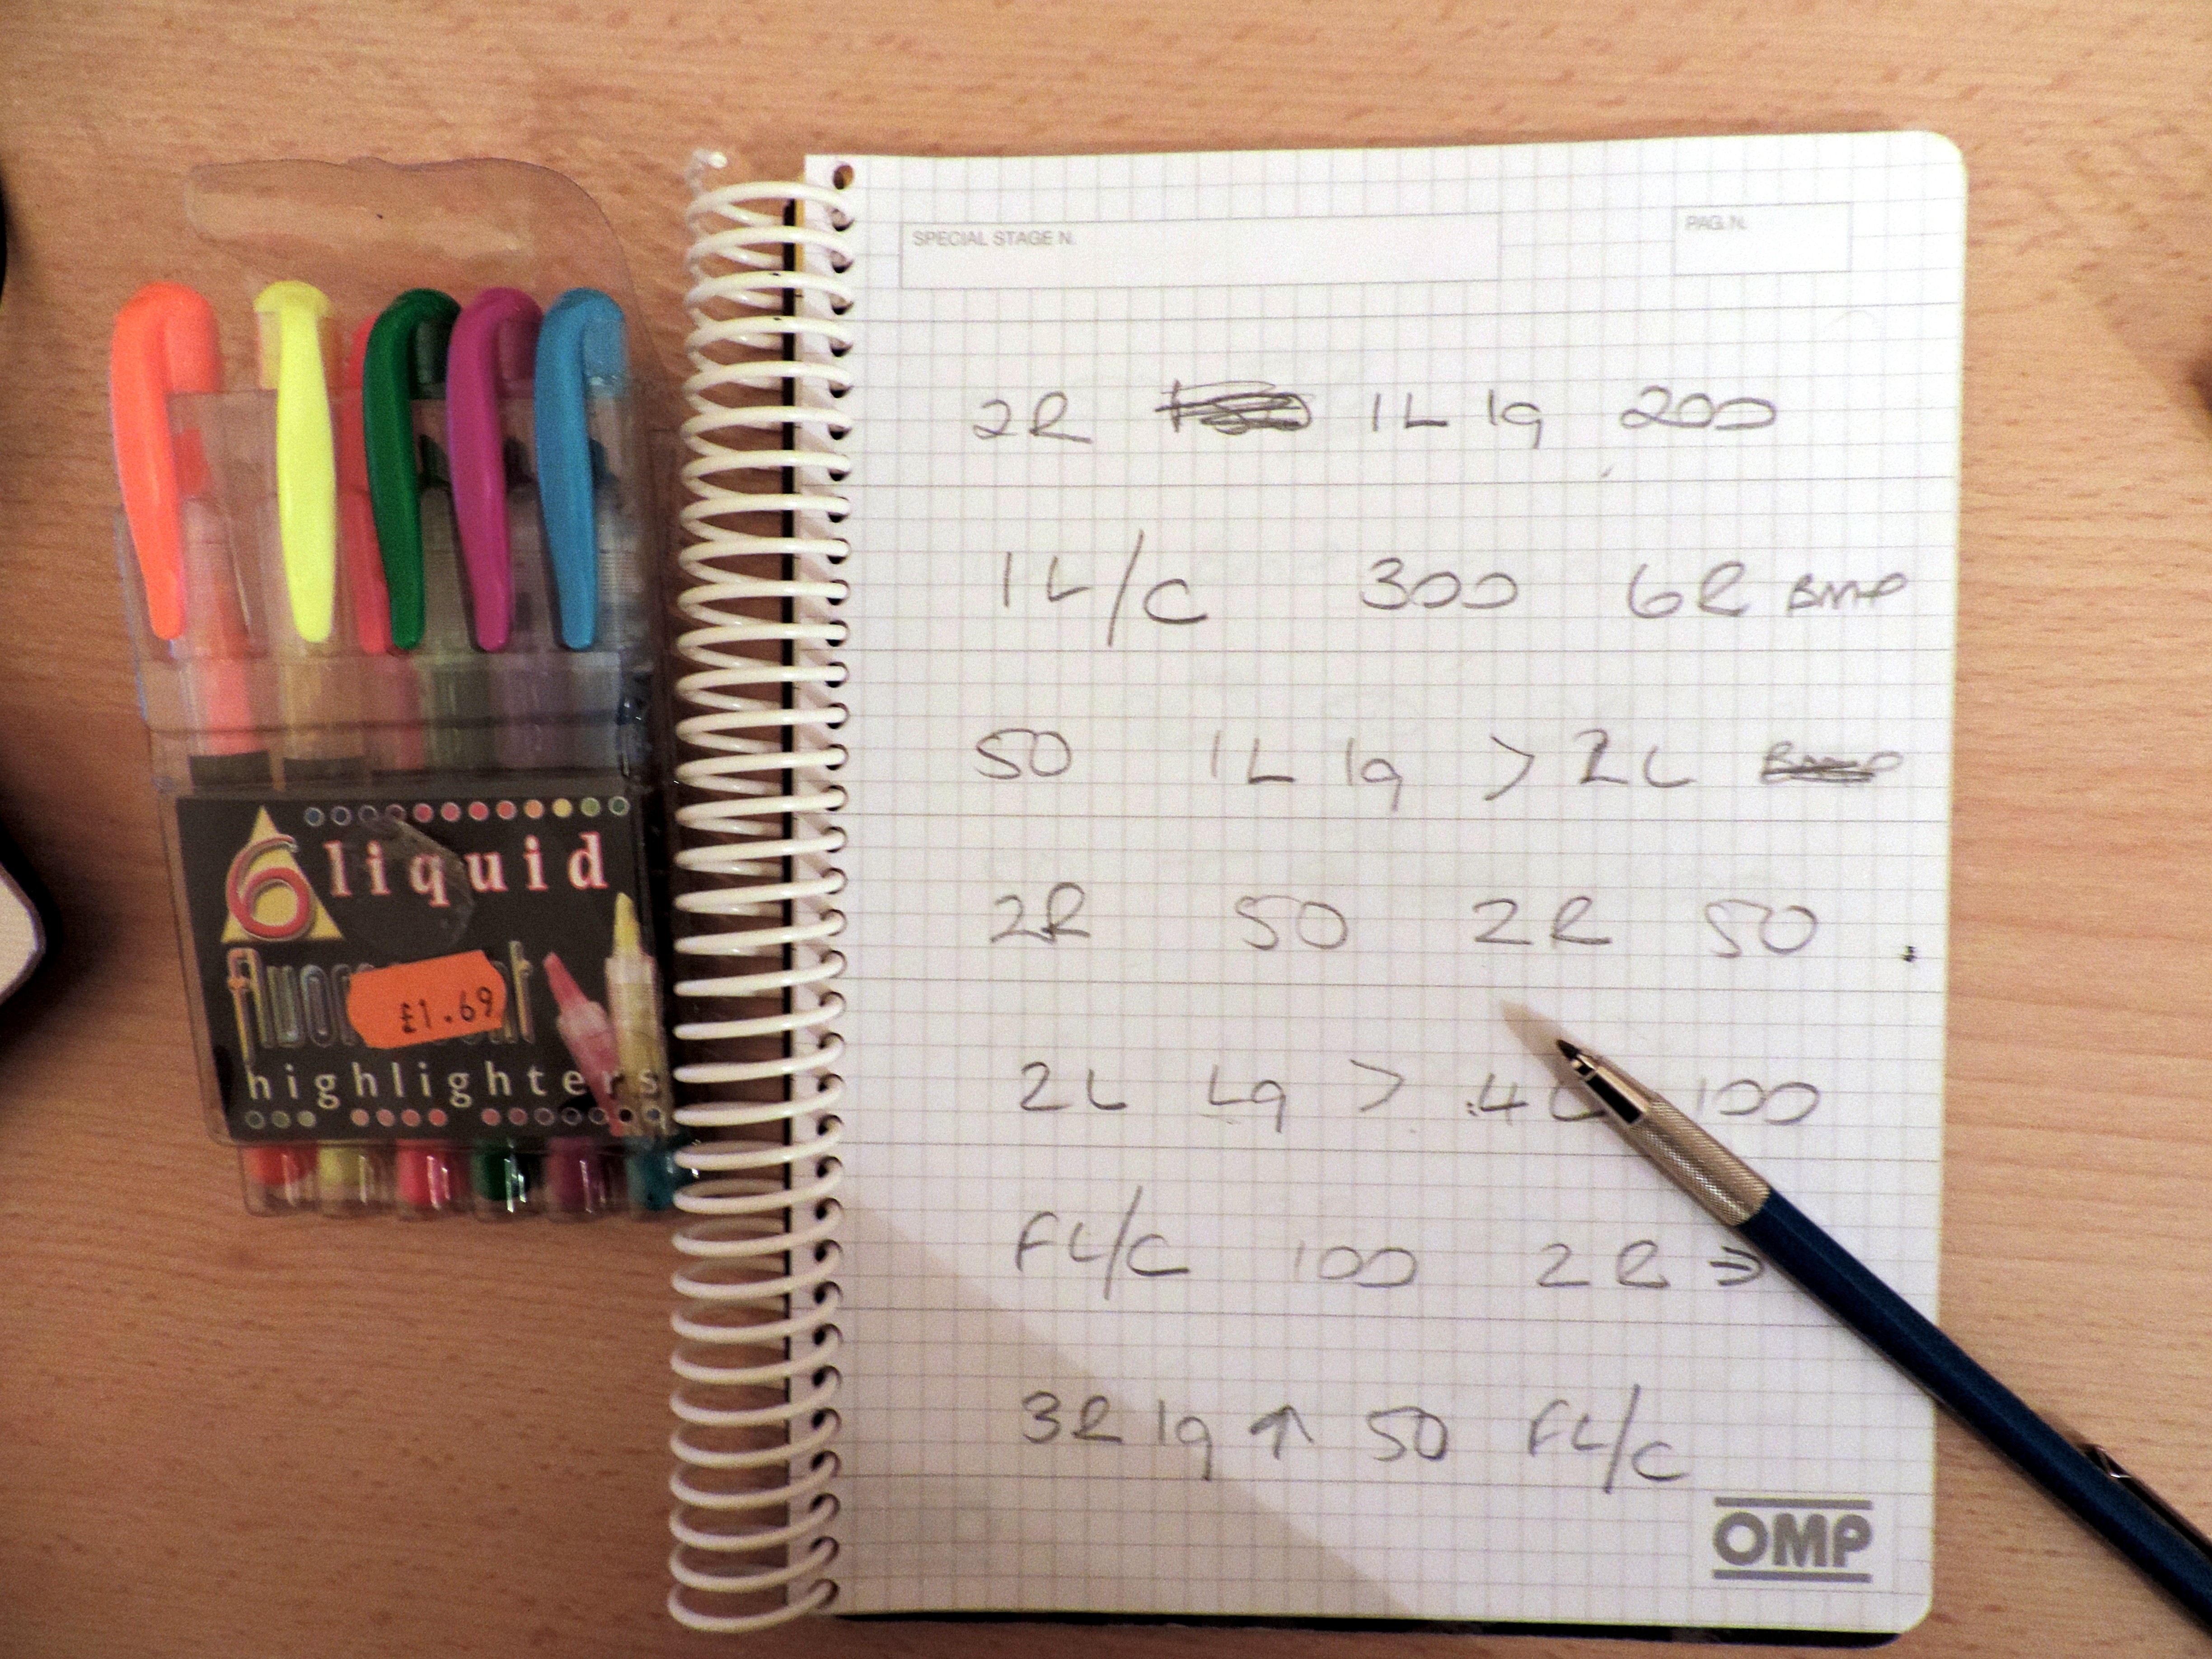 6 liquid
£1.69
highlighters
SPECIAL STAGE N.
PAG. N.
2R 1L lg 200
1L/C 300 6R BMP
50 1L lg > 2L
2R 50 2R 50
2L Lg > 4L 100
FL/C 100 2R ⇒
3R lg ↑ 50 FL/C
OMP